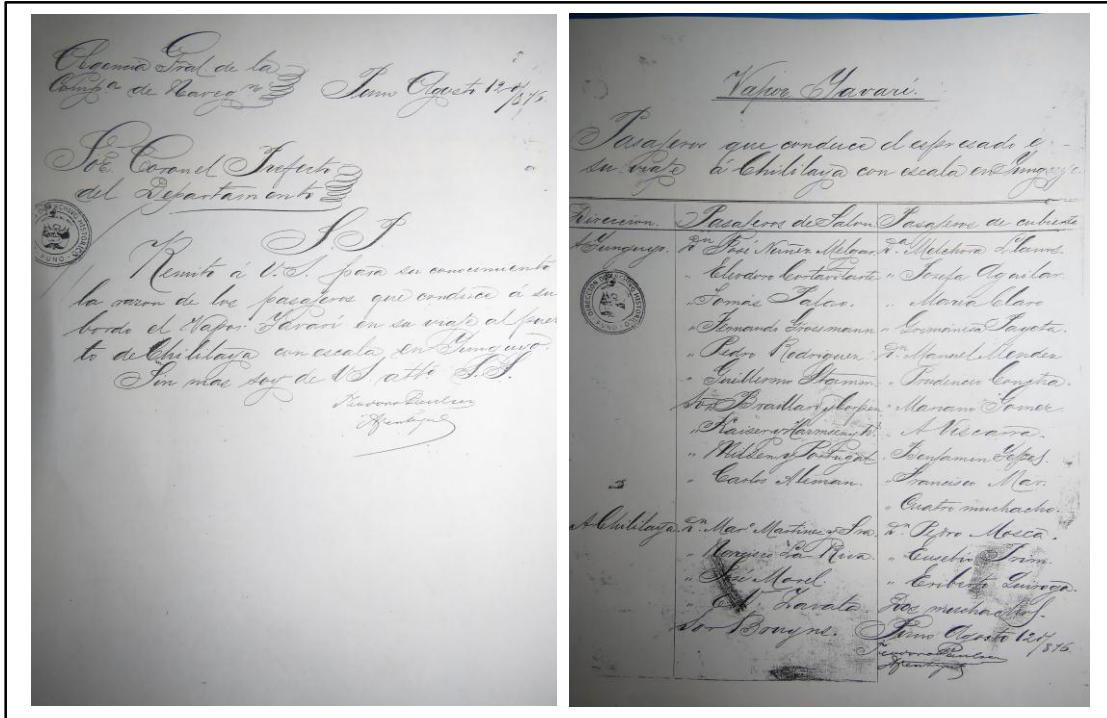 Agencia Gral de la
Compa de Navegn
Puno Agosto 12 de/876.
Sor. Coronel Prefecto
del Departamento
S. P.
Remito á V.S. para su concimiento
la razon de los pasajeros que conduce á su
bordo el Vapor Yavari en su viaje al puer
to de Chililaya con escala en Yunguyo.
Sin mas soy de VS. atto S.S.
Vapor Yavari.
Pasajeros que conduce el espresado e
su viaje á Chililaya con escala en Yunguyo
Direccion. Pasajeros de Salon. Pasajeros de cubierta
A Yunguyo. Dn José Nuñez Melgar Da. Melchora Llanos.
" Eleodoro " Josefa Aguilar
" Tomás " Maria Claro
" Fernando Grossmann "
" Pedro Rodriguez Dn. Manuel Mendez
" Guillermo " Prudencio
Sor Braillar " Mariano Gomez
" Kaiser y " A Viscarra.
" Wilsen y Portugal " Benjamin
" Carlos Aliman. " Francisco Mar.
" Cuatro muchacho.
A Chililaya. Dn. Marº Martinez y Sra. Dn. Pedro Mosca.
" Narciso La Riva. " Eusebio
" José Morel. " Eriberto Quiroga.
" Zavala Dos muchachos.
Sor Bruyns. Puno Agosto 12 de/876.